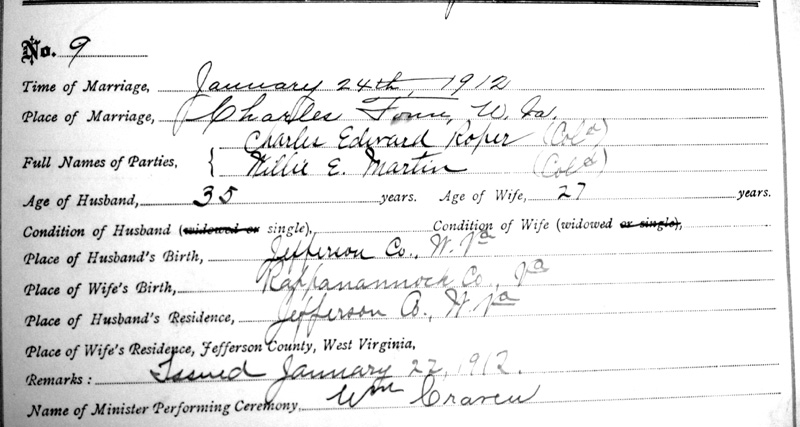 No. 9
Time of Marriage, January 24th, 1912
Place of Marriage, Charles Town, W. Va.
Charles Edward Roper (Col'd)
Full Names of Parties, { Willie E. Martin (Col'd)
Age of Husband, 35 years. Age of Wife, 27 years.
Condition of Husband (widowed or single), Condition of Wife (widowed or single),
Place of Husband's Birth, Jefferson Co., W. Va
Place of Wife's Birth, Rappahannock Co., Va
Place of Husband's Residence, Jefferson Co., W. Va
Place of Wife's Residence, Jefferson County, West Virginia,
Remarks: Issued January 22, 1912.
Name of Minister Performing Ceremony, Wm Craven